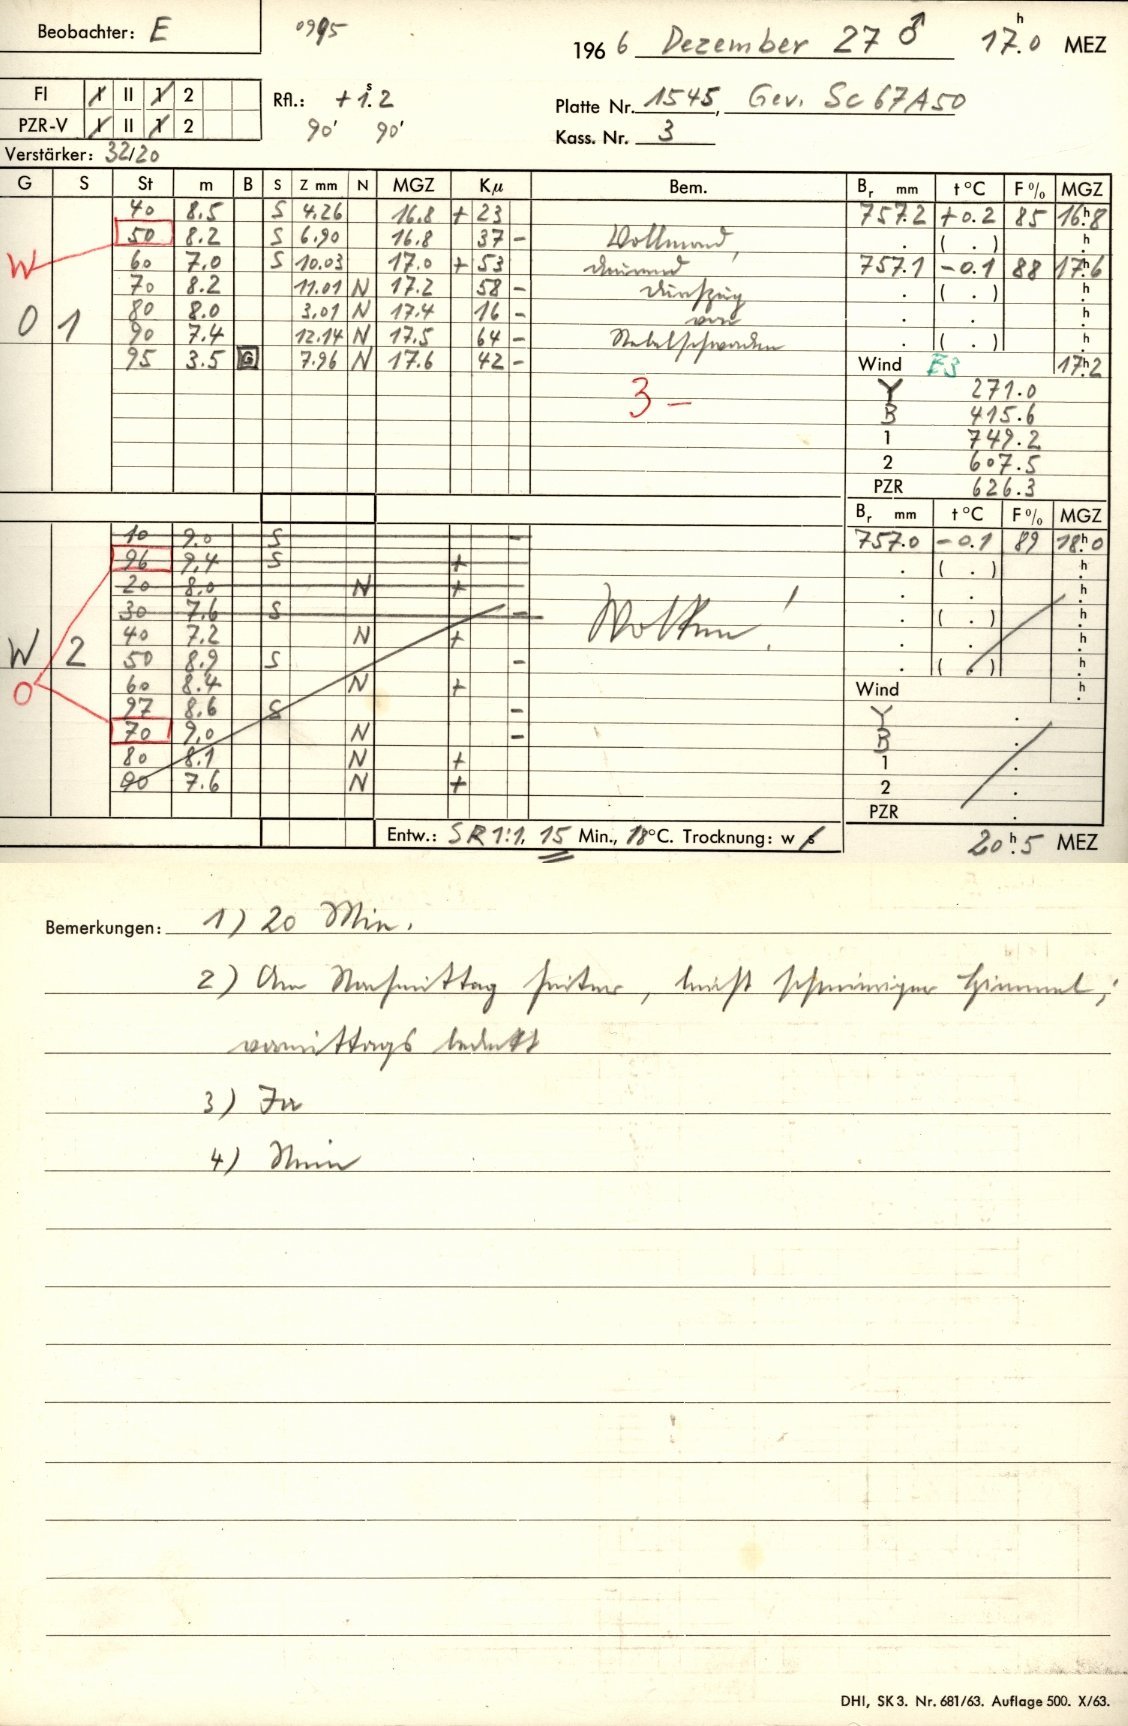 Beobachter: E
196 6 Dezember 27 ♂ 17.0 h MEZ
FI I II 1 2
Rfl.: + 1.2 s
Platte Nr. 1545, Gev. Sc 67A50
PZR-V I II 1 2
90' 90'
Kass. Nr. 3
Verstärker: 32/20
G S St m B S Z mm N MGZ Kμ Bem. Br mm t °C F % MGZ
40 8.5 S 4.26 16.8 + 23 757.2 +0.2 85 16.8 h
50 8.2 S 6.90 16.8 37 - Vollmond, . ( . ) h
W 60 7.0 S 10.03 17.0 + 53 dauernd 757.1 -0.1 88 17.6 h
70 8.2 11.01 N 17.2 58 - Durchzug . ( . ) h
O 1 80 8.0 3.01 N 17.4 16 - von . h
90 7.4 12.14 N 17.5 64 - Nebelschwaden . ( . ) h
95 3.5 G 7.96 N 17.6 42 - Wind E3 17.2 h
3 -
Y 271.0
B 415.6
1 749.2
2 607.5
PZR 626.3
Br mm t °C F % MGZ
10 9.0 S - 757.0 -0.1 89 18.0 h
96 9.4 S + . ( . ) h
20 8.0 N + . h
30 7.6 S - Wolken! . ( . ) h
40 7.2 N + . h
W 2 50 8.9 S - . ( . ) h
O 60 8.4 N + Wind h
97 8.6 S - Y .
70 9.0 N - B .
80 8.1 N + 1 .
90 7.6 N + 2 .
PZR .
Entw.: SR 1:1, 15 Min., 18 °C. Trocknung: w k
20.5 h MEZ
Bemerkungen: 1) 20 Min.
2) Am Nachmittag heiter, leicht schlieriger Himmel;
vormittags bedeckt
3) Ja
4) Nein
DHI, SK 3. Nr. 681/63. Auflage 500. X/63.